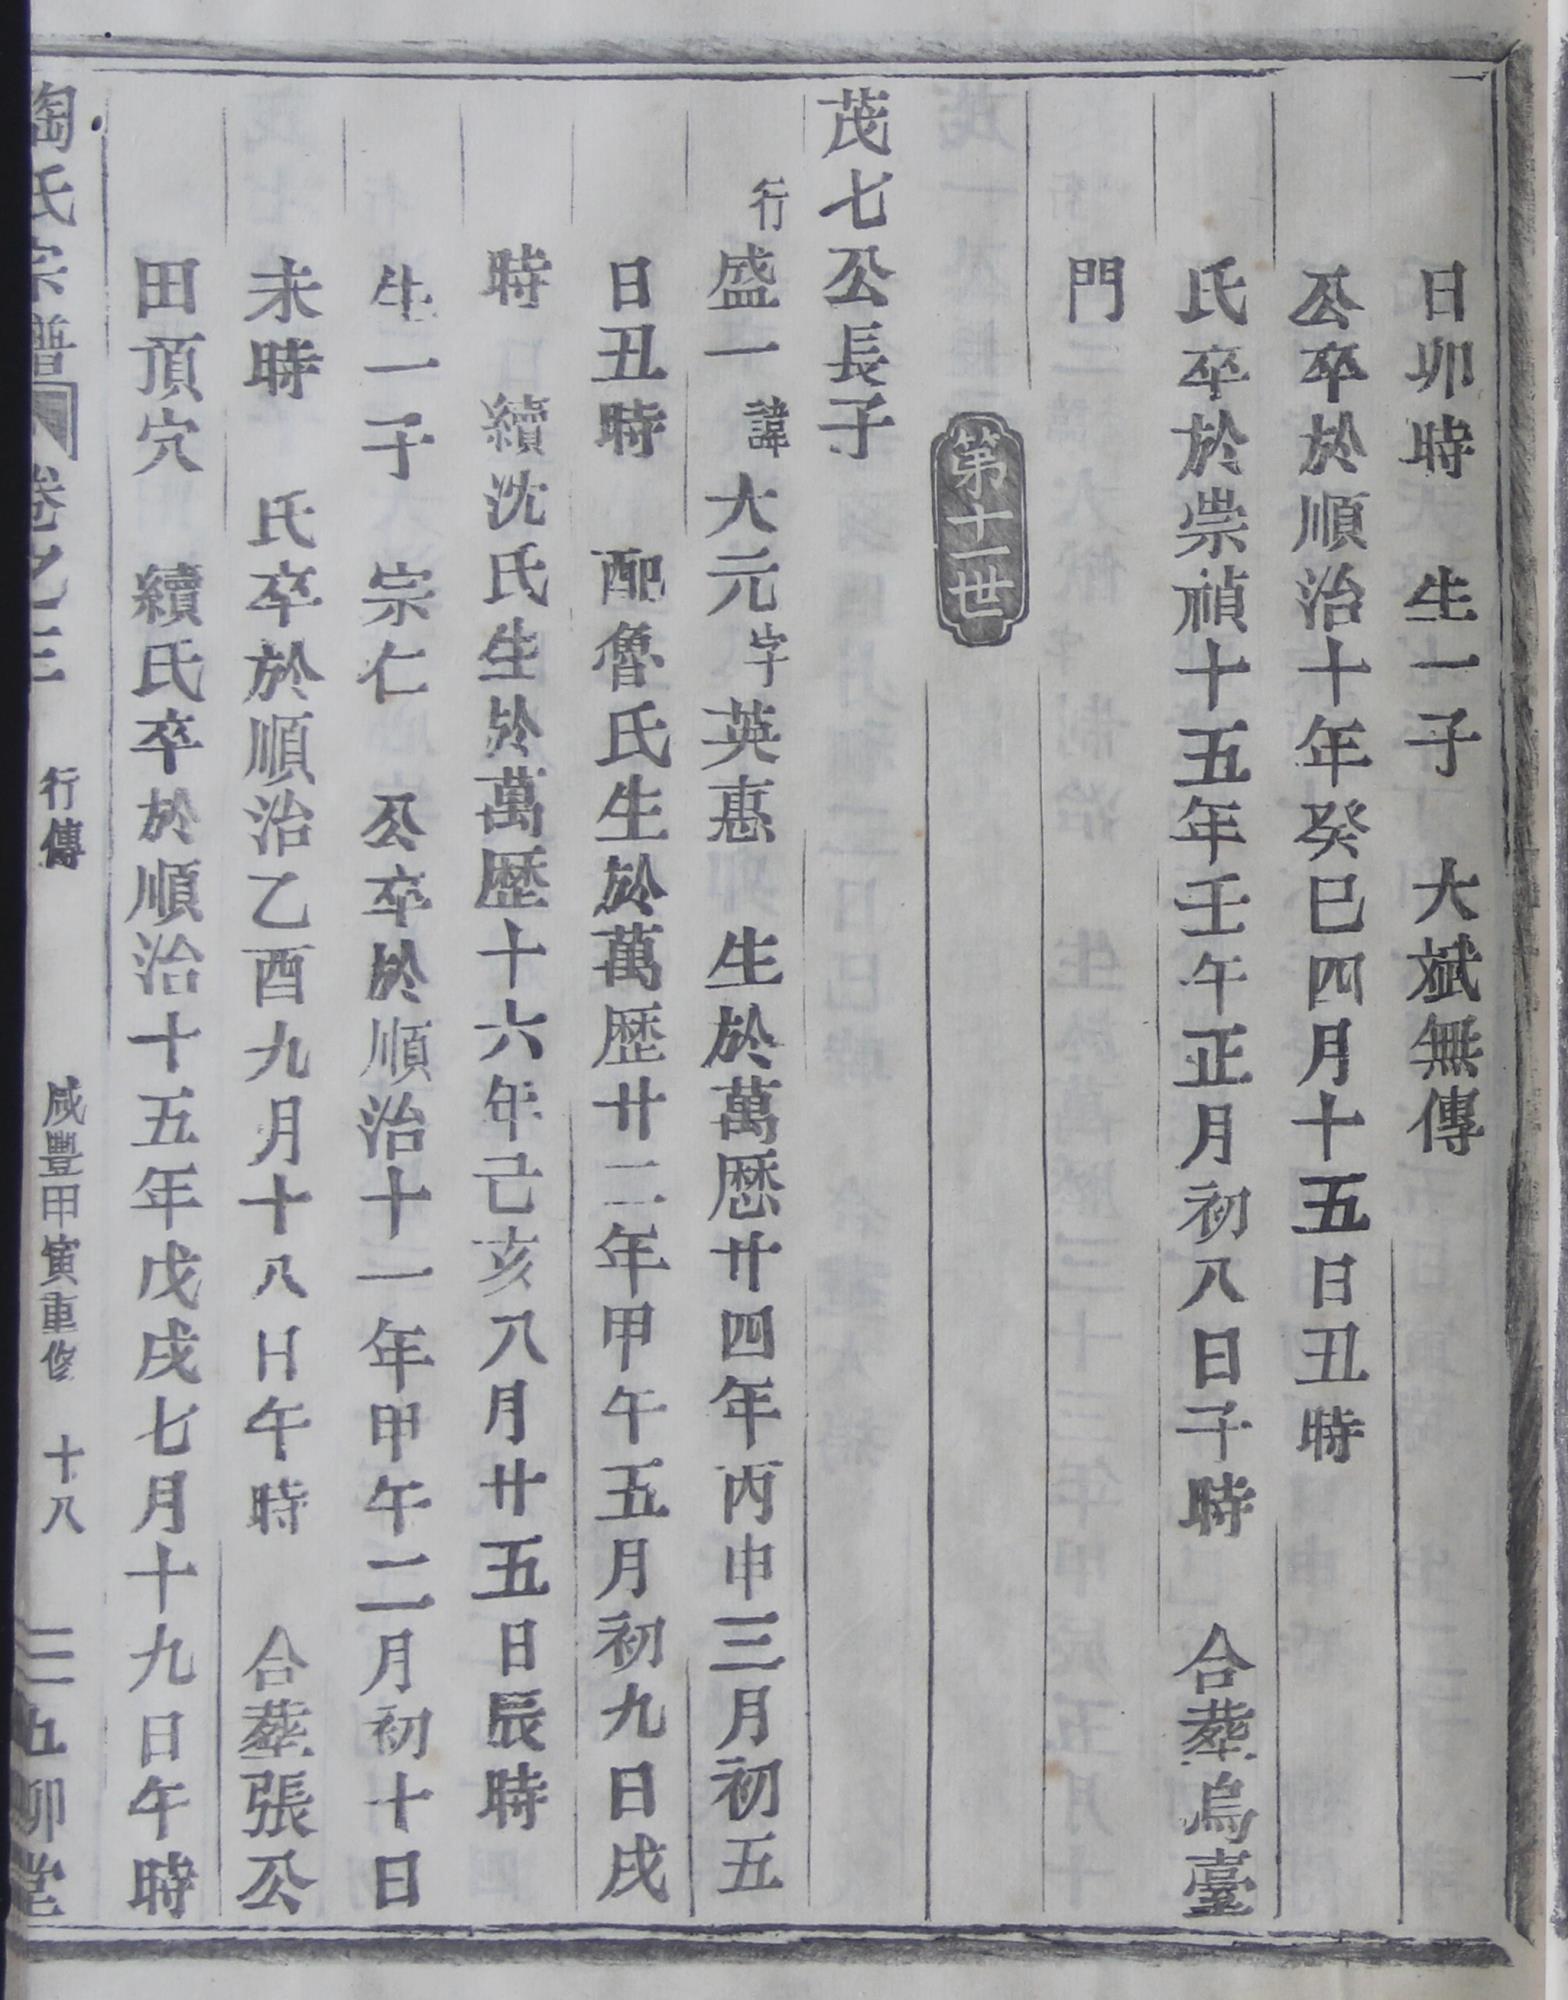 日卯時　生一子　大斌無傳
公卒於順治十年癸巳四月十五日丑時
氏卒於崇禎十五年壬午正月初八日子時　合葬烏臺
門
第十一世
茂七公長子
行盛一諱大元字英惠　生於萬歷廿四年丙申三月初五
日丑時　配魯氏生於萬歷廿二年甲午五月初九日戌
時　續沈氏生於萬歷十六年己亥八月廿五日辰時
生一子　宗仁　公卒於順治十一年甲午二月初十日
未時　氏卒於順治乙酉九月十八日午時　合葬張公
田頂穴　續氏卒於順治十五年戊戌七月十九日午時
陶氏宗譜　卷之三　行傳　咸豐甲寅重修　十八　五柳堂